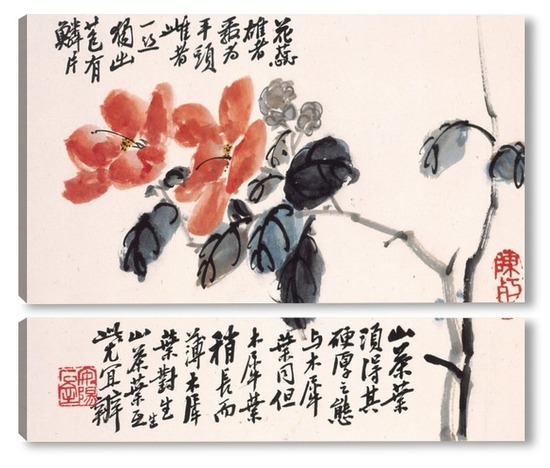 花蕊
雄者
为
平頭
雌者
一
獨出
苞有
鱗片
山茶葉
須得其
硬厚之態
与木犀
葉同但
木犀葉
稍長而
薄木犀
葉對生
山茶葉互生
此尤宜辨
陳